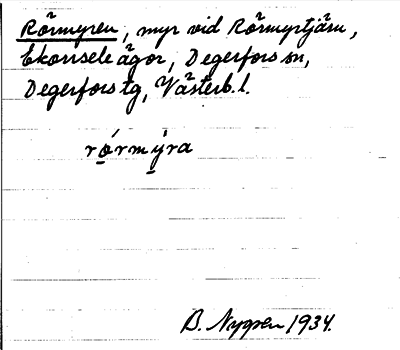 Rörmyren, myr vid Rörmyrtjärn,
Ekorrsele ägor, Degerfors sn,
Degerfors tg, Västerb. l.
rǫ́rmý̨ra
B. Nygren 1934.